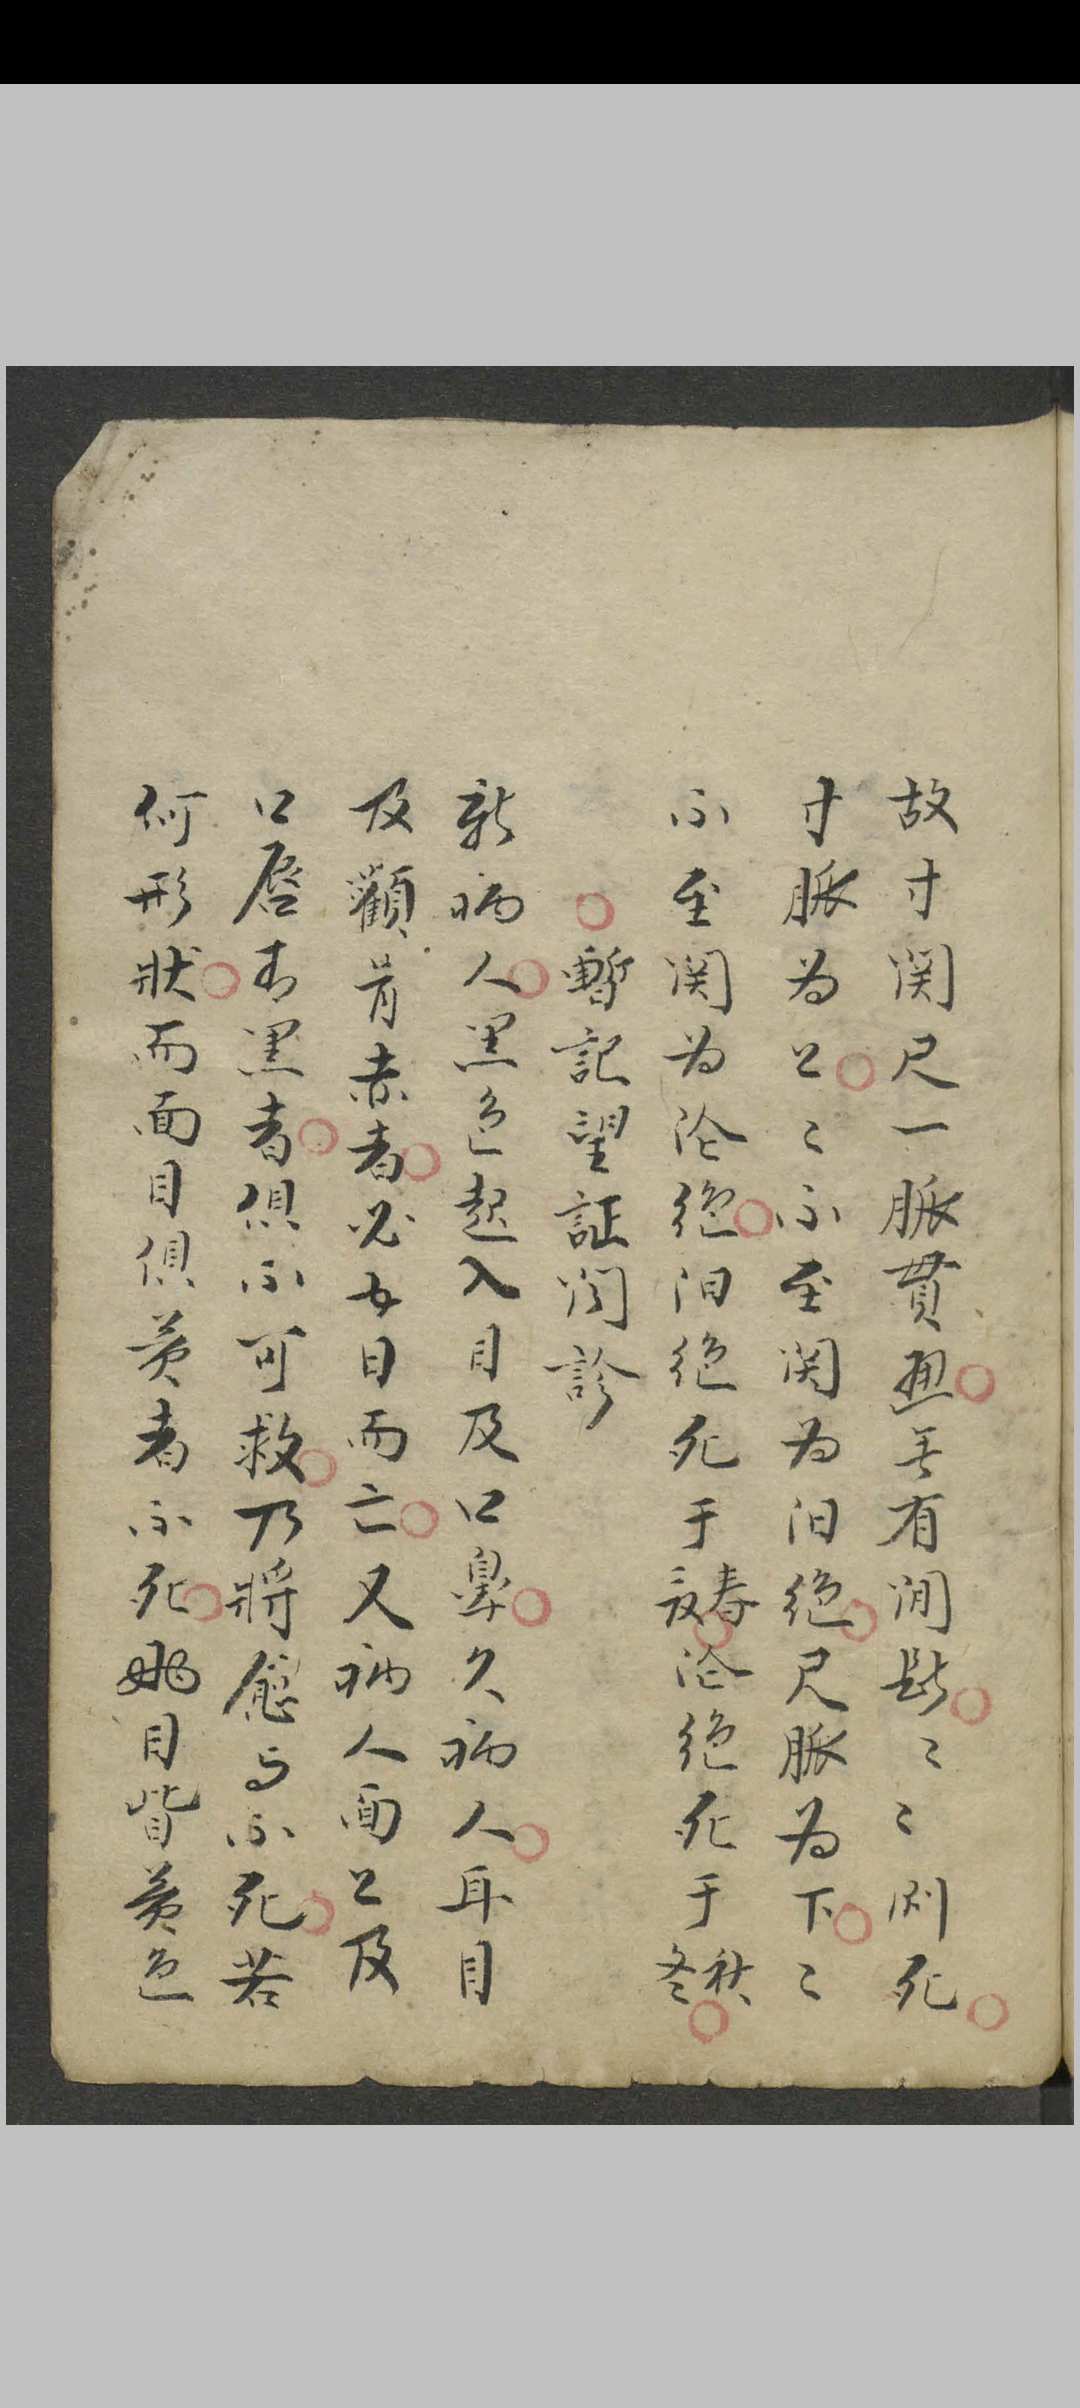 故寸関尺一脈貫照無有間断ミミ則死
寸脈為上ミ不至関為汨絶尺脈為下ミ
不至関為沦絶汨絶死于春夏沦絶死于秋冬
暫記望証聞診
新病人黒色起入目及口鼻久病人耳目
及顴骨赤者必五日而亡又病人面上及
口唇青黒者俱不可救乃將愈与不死若
何形状而面目俱黄者不死姚目眥黄色